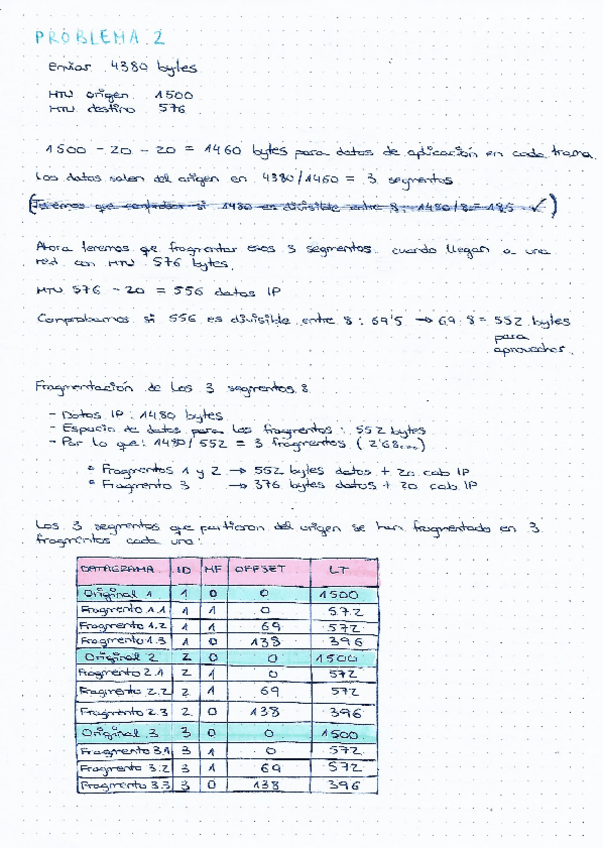 PROBLEMA 2
enviar 4380 bytes
MTU origen 1500
MTU destino 576
1500 - 20 - 20 = 1460 bytes para datos de aplicación en cada trama.
Los datos salen del origen en 4380/1460 = 3 segmentos
(Tenemos que controlar si 1480 es divisible entre 8: 1480/8 = 185 ✓)
Ahora tenemos que fragmentar esos 3 segmentos cuando llegan a una
red con MTU 576 bytes.
MTU 576 - 20 = 556 datos IP
Comprobamos si 556 es divisible entre 8: 69'5 → 69·8 = 552 bytes
para
aprovechar.
Fragmentación de los 3 segmentos:
- Datos IP: 1480 bytes
- Espacio de datos para los fragmentos: 552 bytes
- Por lo que: 1480/552 = 3 fragmentos (2'68...)
* Fragmentos 1 y 2 → 552 bytes datos + 20 cab IP
* Fragmento 3 → 376 bytes datos + 20 cab IP
Los 3 segmentos que partieron del origen se han fragmentado en 3
fragmentos cada uno:
DATAGRAMA ID MF OFFSET LT
Original 1 1 0 0 1500
Fragmento 1.1 1 1 0 572
Fragmento 1.2 1 1 69 572
Fragmento 1.3 1 0 138 396
Original 2 2 0 0 1500
Fragmento 2.1 2 1 0 572
Fragmento 2.2 2 1 69 572
Fragmento 2.3 2 0 138 396
Original 3 3 0 0 1500
Fragmento 3.1 3 1 0 572
Fragmento 3.2 3 1 69 572
Fragmento 3.3 3 0 138 396